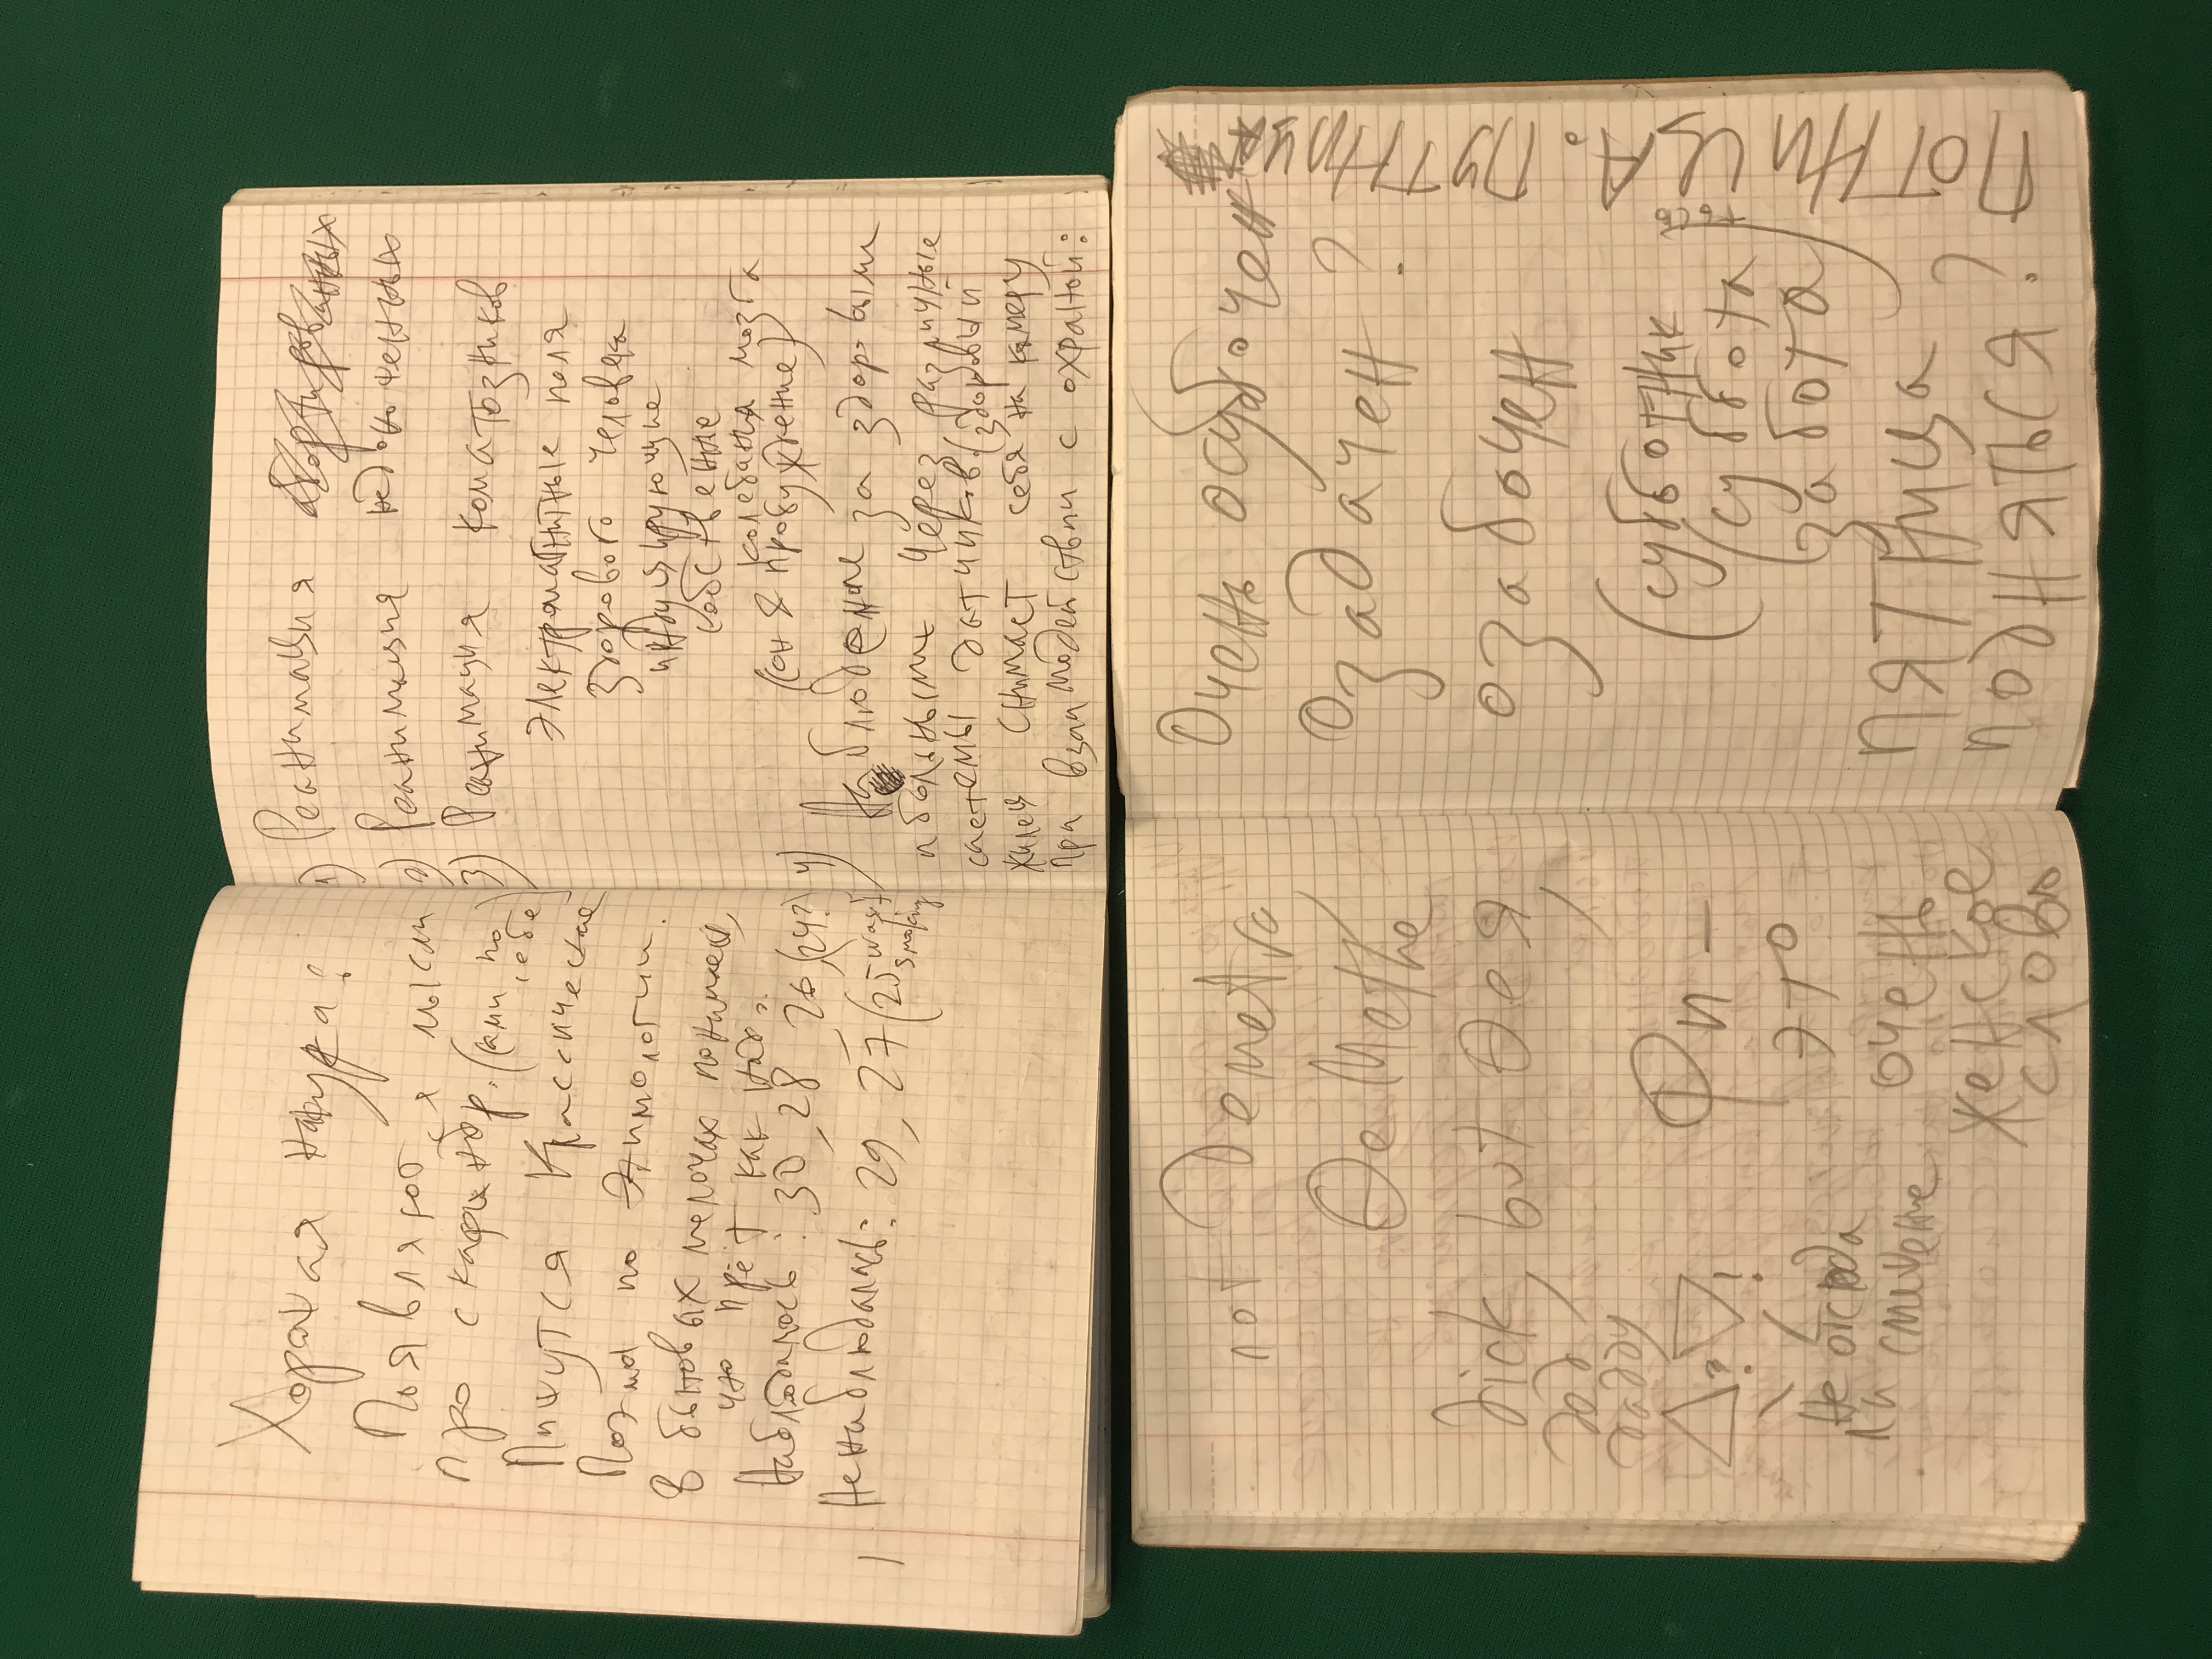 Хорошая накурка:
Появляются мысли
про скафандр. (сами по
себе)
Пишутся Классические
Поэма по Этимологии.
В бытовых мелочах понимаешь,
что прёт как надо.
Наблюдалось: 30, 28, 26, (24?)
Не наблюдалась: 29, 27 (25 wasn't
smoking
1) Реанимация абортированных
2) Реанимация недоношенных
3) Реанимация коматозников
Электромагнитные поля
здорового человека
индуцирующие
собственные
колебания мозга
(сон & пробуждение)
4) Наблюдение за здоровыми
и больными через различные
системы датчиков. (здоровый
жилец снимает себя на камеру
при взаимодействии с охраной:
not Demetra,
De Mothe
dick, but Dея,
дод,
daddy
? !
Не отсюда
ли смещение
Фи -
это
очень
женское
слово
Очень осубочен
Озадачен ?
озабочен
(субботник
(суббота
забота)
тысь
пятница
подняться?
ПОТНИЦА. ПУТНИЦА